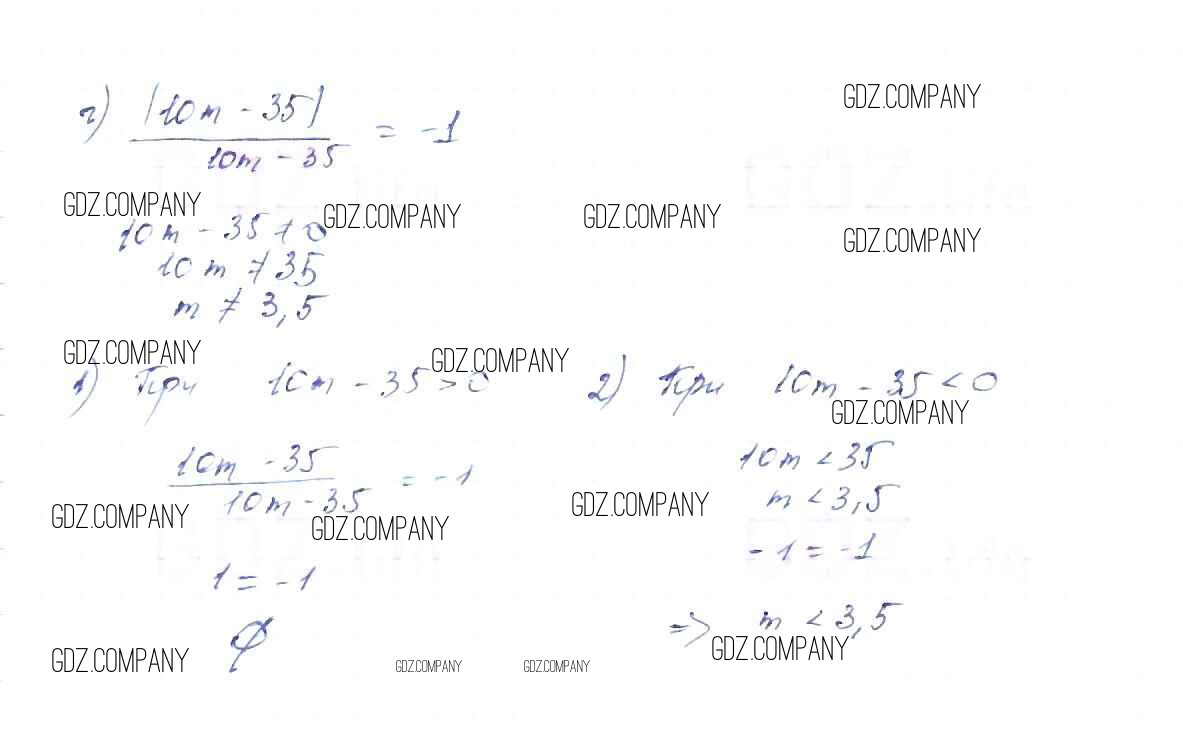 г) |10m - 35|
10m - 35 = -1
GDZ.COMPANY
GDZ.COMPANY GDZ.COMPANY GDZ.COMPANY
GDZ.COMPANY
10m - 35 ≠ 0
10m ≠ 35
m ≠ 3,5
GDZ.COMPANY GDZ.COMPANY
1) При 10m - 35 > 0
10m - 35
10m - 35 = -1
GDZ.COMPANY GDZ.COMPANY
1 = -1
∅
GDZ.COMPANY GDZ.COMPANY GDZ.COMPANY
2) При 10m - 35 < 0
GDZ.COMPANY
10m < 35
GDZ.COMPANY m < 3,5
-1 = -1
=> m < 3,5
GDZ.COMPANY